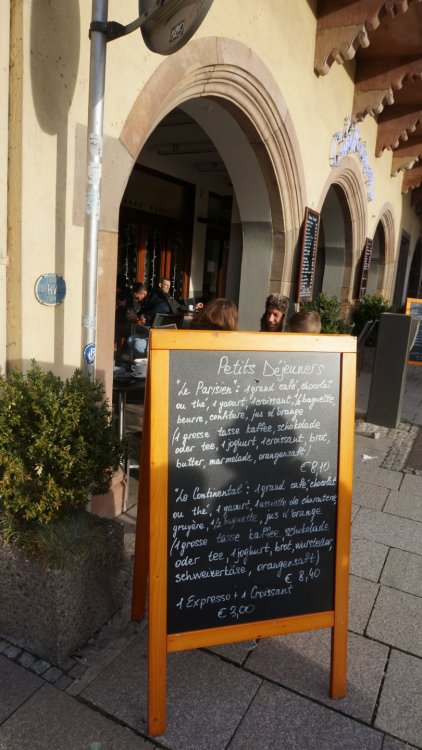 Petits Déjeuners
"Le Parisien": 1 grand café, chocolat
ou thé, 1 yaourt, 1 croissant, 1/2 baguette
beurre, confiture, jus d'orange
(1 grosse tasse kaffee, schokolade
oder tee, 1 joghurt, 1 croissant, brot,
butter, marmelade, orangensaft)
€ 8,10
"Le Continental": 1 grand café, chocolat
ou thé, 1 yaourt, 1 assiette de charcuterie
gruyère, 1/2 baguette, jus d'orange
(1 grosse tasse kaffee, schokolade
oder tee, 1 joghurt, brot, wursteller,
schweizerkäse, orangensaft)
€ 8,40
1 Expresso + 1 Croissant
€ 3,00